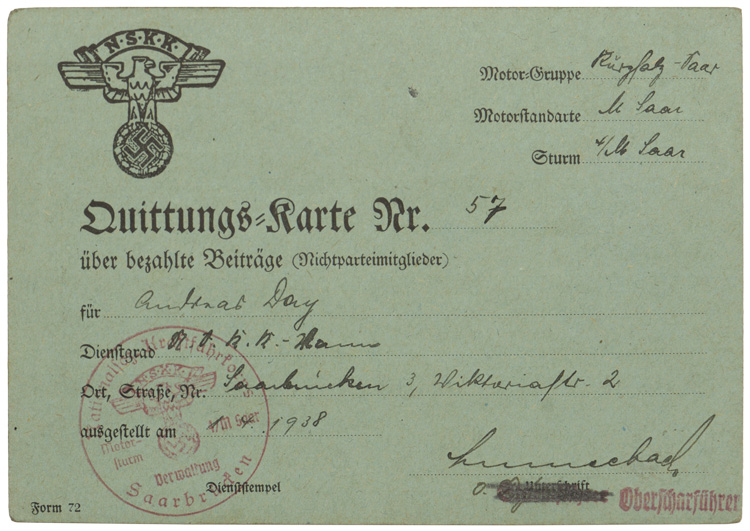 N·S·K·K·
Motor-Gruppe Kurpfalz-Saar
Motorstandarte M Saar
Sturm 4/M Saar
Quittungs-Karte Nr. 57
über bezahlte Beiträge (Nichtparteimitglieder)
für Andreas Day
Dienstgrad N.S.K.K.-Mann
Ort, Straße, Nr. Saarbrücken 3, Viktoriastr. 2
ausgestellt am 1938
N·S·K·K
Motor-
sturm
4/M Saar
Verwaltung
Saarbrücken
Dienststempel
Unterschrift
Oberscharführer
Form 72